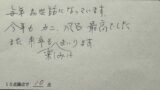 毎年お世話になっています
今年もカニ 成長 最高でした
また来年もおまかります
楽しみに
10点満点で 10 点